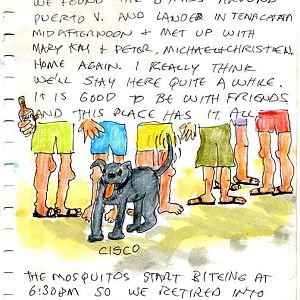 WE FOUND THE B
PUERTO V. AND LANDED IN TENACATITA
MID AFTERNOON & MET UP WITH
MARY KAY & PETER, MICHAEL & CHRISTIEN.
HOME AGAIN. I REALLY THINK
WE'LL STAY HERE QUITE A WHILE.
IT IS GOOD TO BE WITH FRIENDS
AND THIS PLACE HAS IT ALL.
CISCO
THE MOSQUITOS START BITEING AT
6:30PM SO WE RETIRED INTO